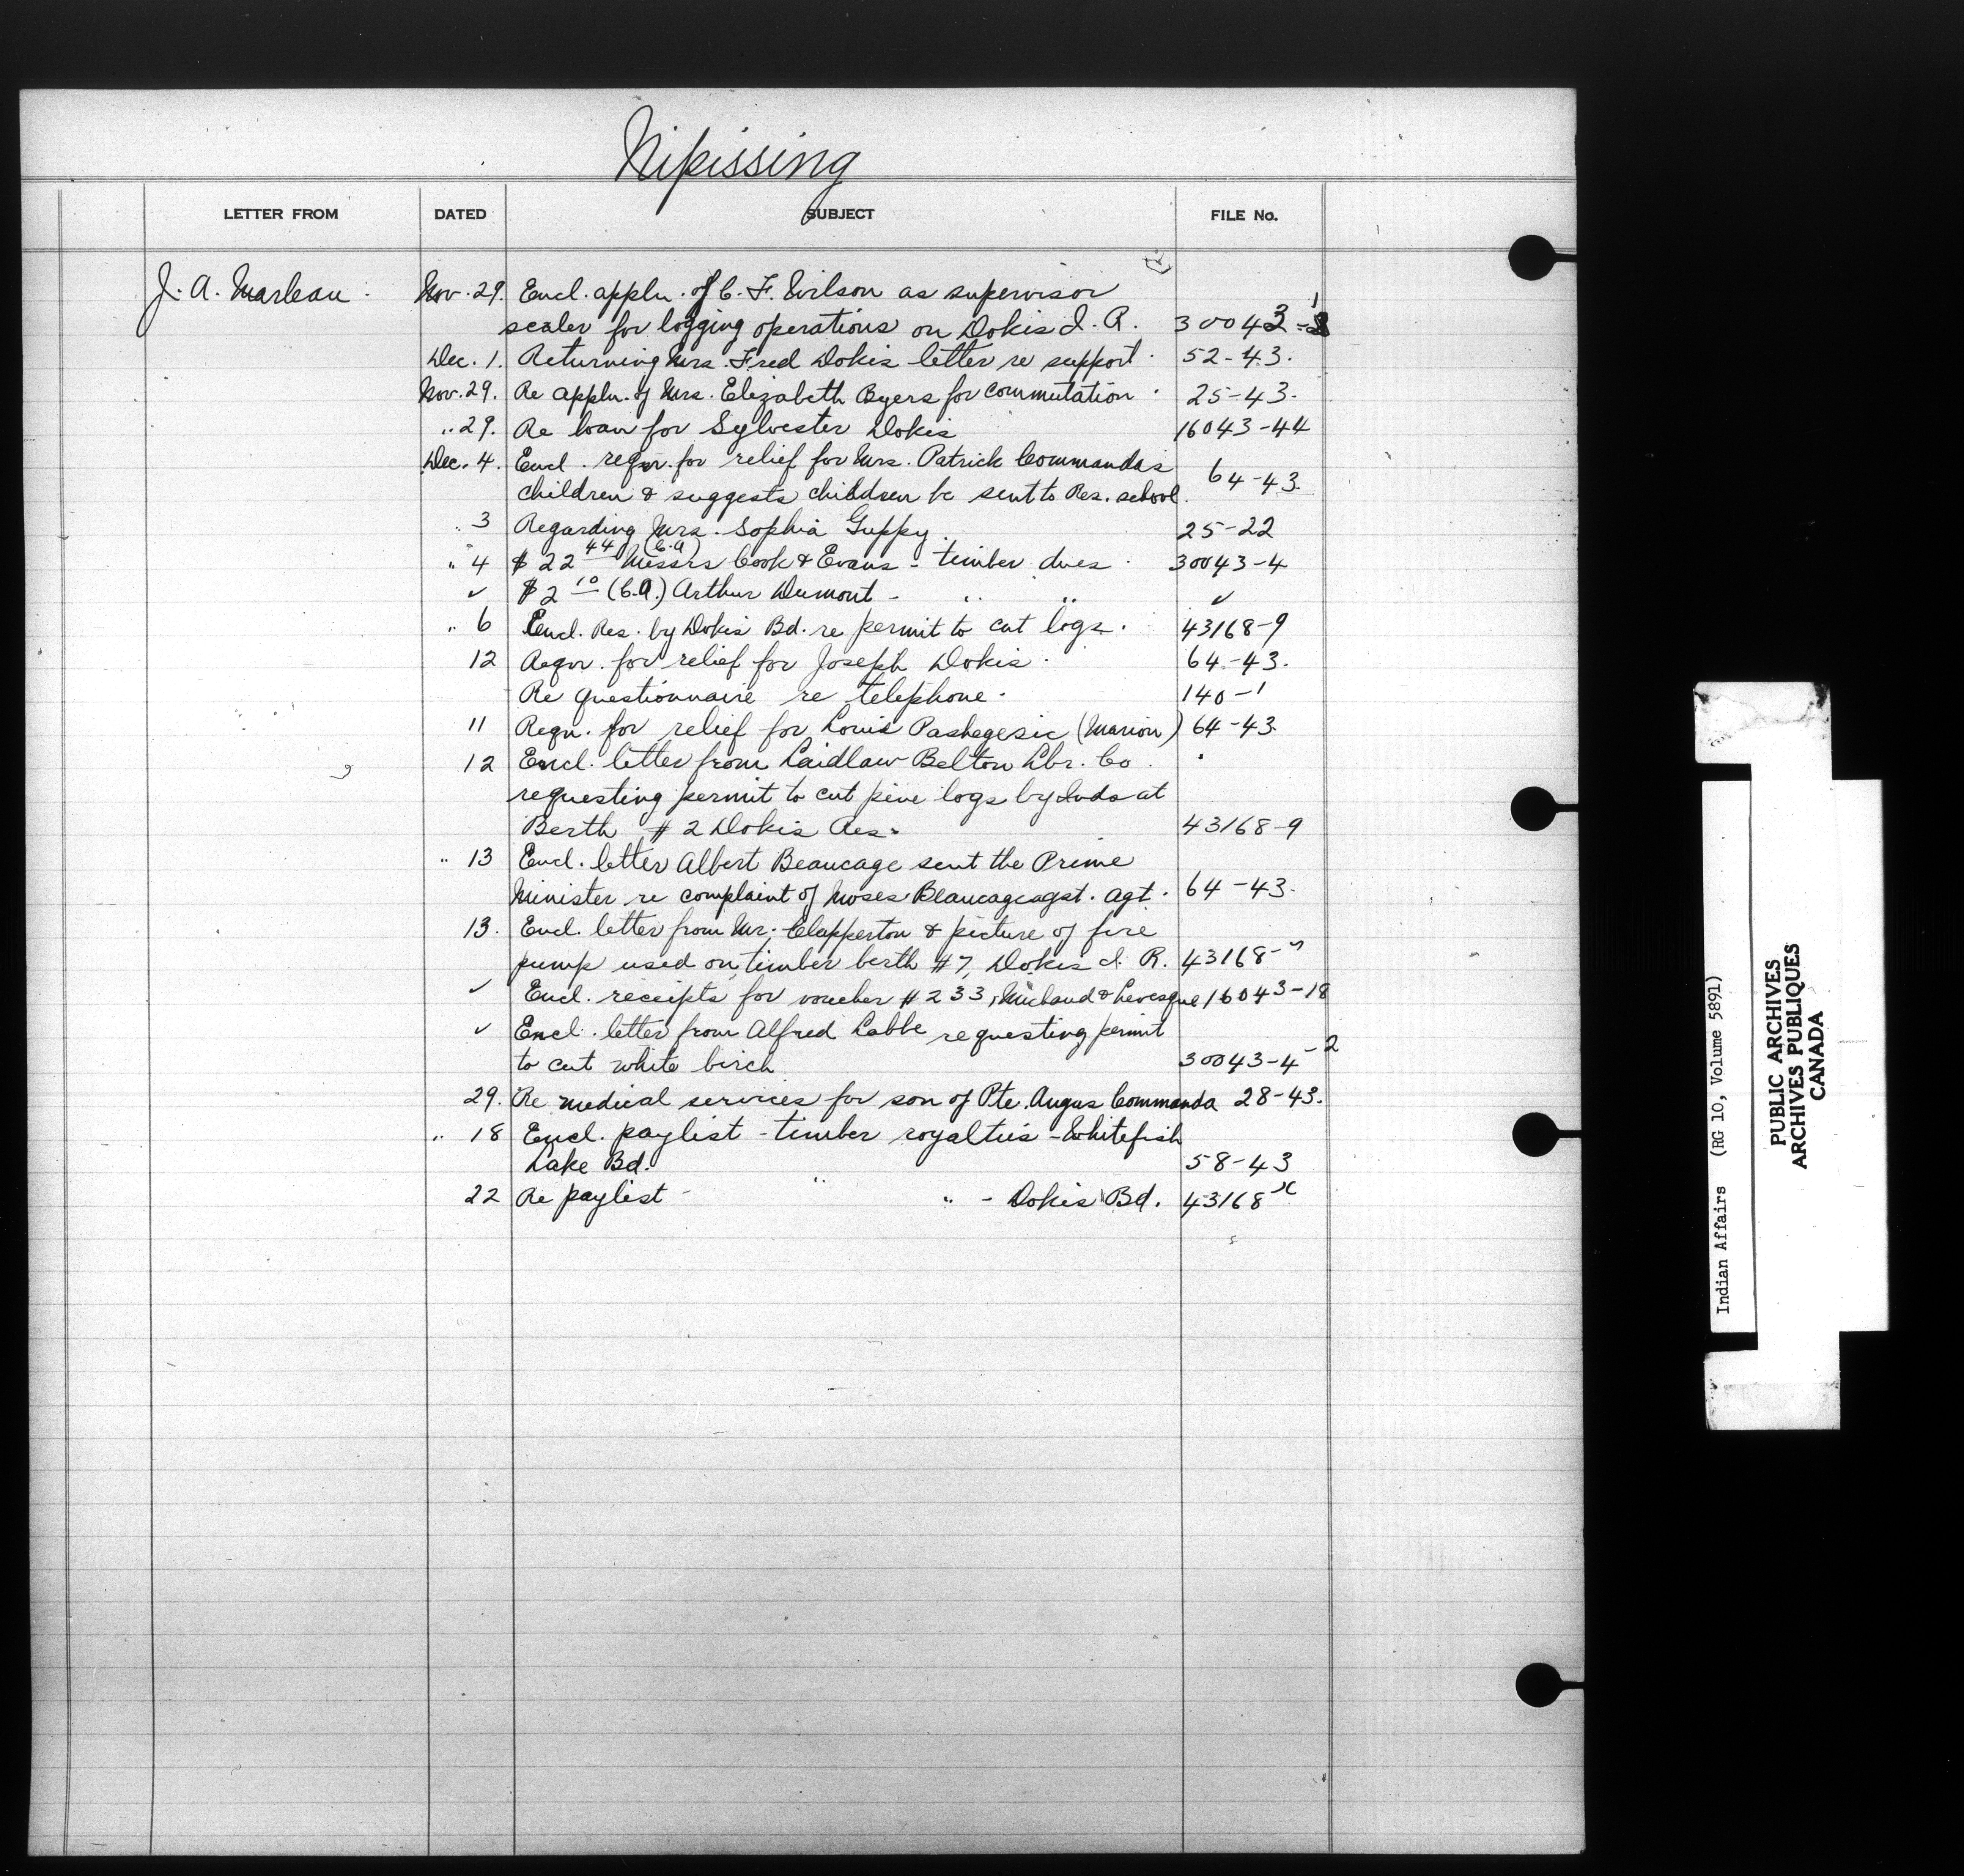 Nipissing
LETTER FROM DATED SUBJECT FILE No.
J. A. Marleau. Nov. 29. Encl. appln. of C. F. Wilson as supervisor
scaler for logging operations on Dokis I. R. 30043-
Dec. 1. Returning Mrs. Fred Dokis letter re support. 52-43.
Nov. 29. Re appln. of Mrs. Elizabeth Byers for commutation. 25-43.
" 29. Re loan for Sylvester Dokis 16043-44
Dec. 4. Encl. reqn. for relief for Mrs. Patrick Commanda's
children & suggests children be sent to Res. school. 64-43.
" 3 Regarding Mrs. Sophia Guppy. 25-22
" 4 $22 44 (C.A) Messrs Cook & Evans - timber dues. 30043-4
✓ $2 10 (C.A.) Arthur Dumont - " " ✓
" 6 Encl. Res. by Dokis Bd. re permit to cut logs. 43168-9
12 Reqn. for relief for Joseph Dokis. 64-43.
Re questionnaire re telephone. 140-1
11 Reqn. for relief for Louis Pashegesic (Marion) 64-43.
12 Encl. letter from Laidlaw Belton Lbr. Co.
requesting permit to cut pine logs by Inds at
Berth #2 Dokis Res. 43168-9
" 13 Encl. letter Albert Beaucage sent the Prime
Minister re complaint of Moses Beaucage agst. Agt. 64-43.
13. Encl. letter from Mr. Clapperton & picture of fire
pump used on timber berth #7, Dokis I. R. 43168-
✓ Encl. receipts for voucher #233, Michaud & Levesque 16043-18
✓ Encl. letter from Alfred Labbe requesting permit
to cut white birch 30043-4-2
29. Re medical services for son of Pte. Angus Commanda 28-43.
" 18 Encl. paylist - timber royalties - Whitefish
Lake Bd. 58-43
22 Re paylist - " " - Dokis Bd. 43168
Indian Affairs (RG 10, Volume 5891)
PUBLIC ARCHIVES
ARCHIVES PUBLIQUES
CANADA